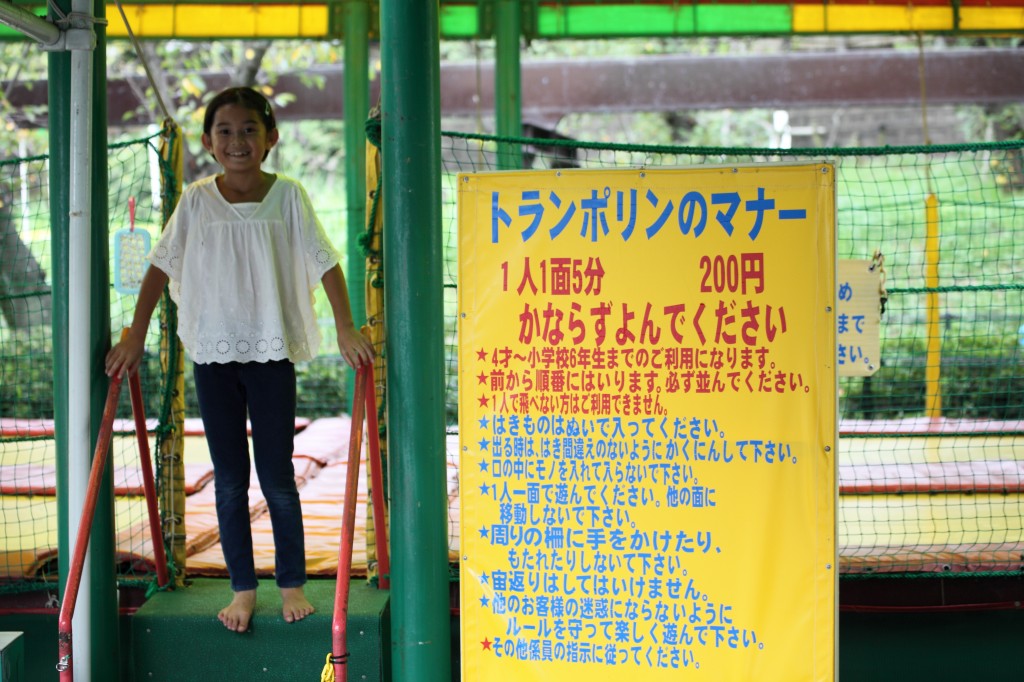 トランポリンのマナー
1人1面5分 200円
かならずよんでください
★4才～小学校6年生までのご利用になります。
★前から順番にはいります。必ず並んでください。
★1人で飛べない方はご利用できません。
★はきものはぬいで入ってください。
★出る時は、はき間違えのないようにかくにんして下さい。
★口の中にモノを入れて入らないで下さい。
★1人一面で遊んでください。他の面に
移動しないで下さい。
★周りの柵に手をかけたり、
もたれたりしないで下さい。
★宙返りはしてはいけません。
★他のお客様の迷惑にならないように
ルールを守って楽しく遊んで下さい。
★その他係員の指示に従ってください。
め
まで
さい。